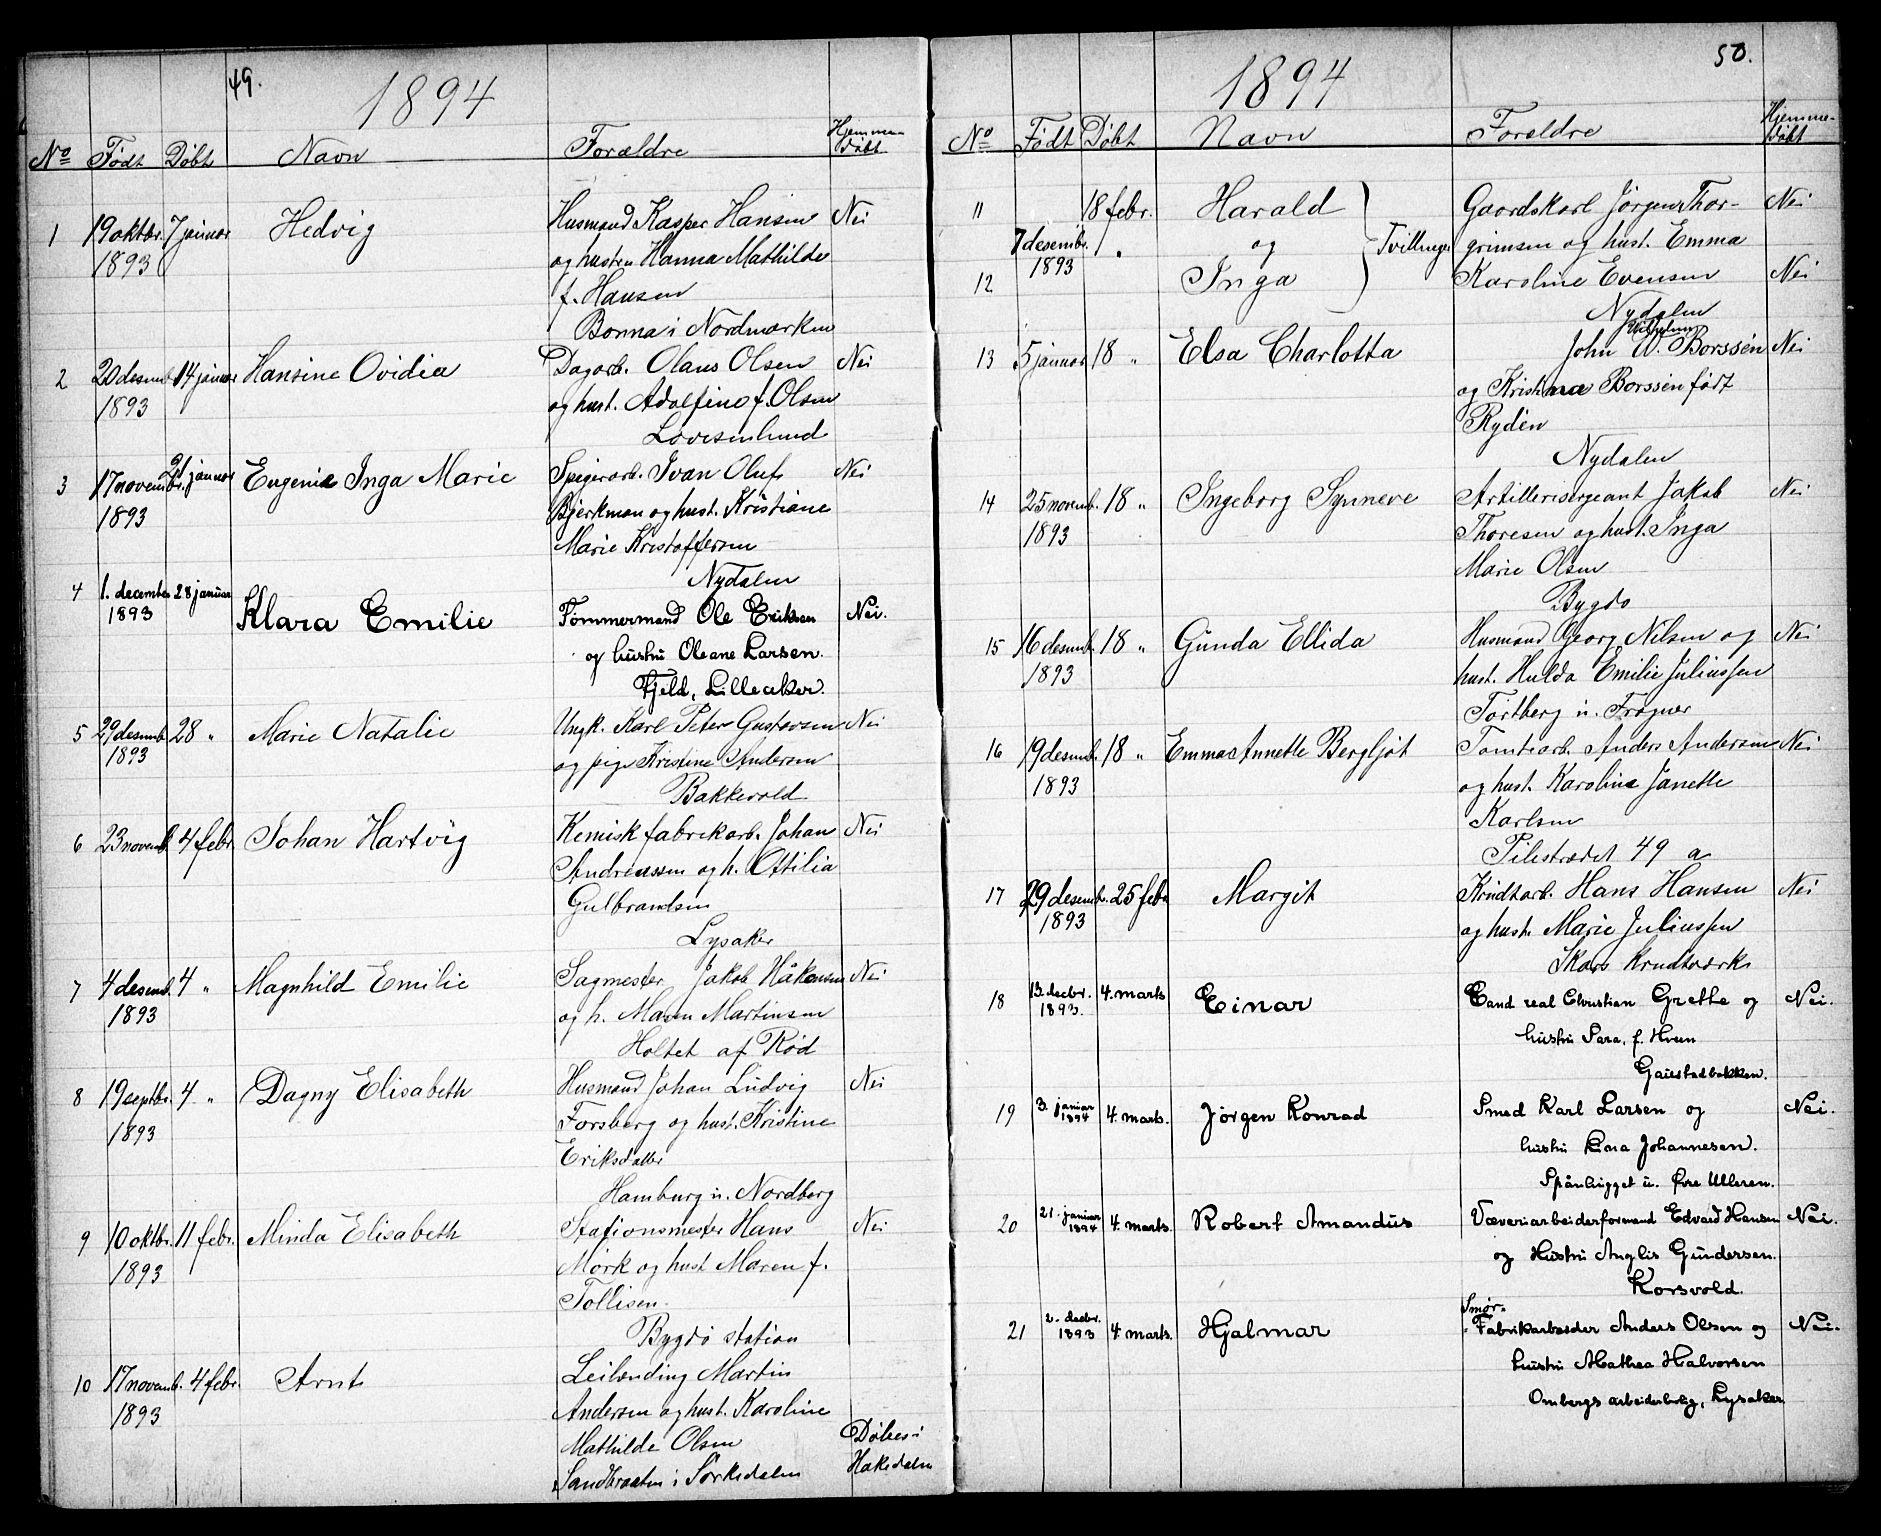 49.
1894
No Født Døbt Navn Forældre Hjemme-
døbt
1 19 oktbr. 7 januar Hedvig Husmand Kasper Hansen Nei
1893 og hustru Hanna Mathilde
f. Hansen
Bonna i Nordmarken
2 20 desemb. 14 januar Hansine Ovidia Dagarb. Olaus Olsen Nei
1893 og hust. Adolfine f. Olsen
Lovisenlund
3 17 novemb. 21 januar Eugenie Inga Marie Spigerarb. Ivar Oluf Nei
1893 Bjerkman og hust. Kristiane
Marie Kristoffersen
Nydalen
4 1. december 28 januar Klara Emilie Tømmermand Ole Eriksen Nei.
1893 og hustru Oleane Larsen.
Fjeld, Lilleaker.
5 29 desemb. 28 " Marie Natalie Ungk. Karl Peter Gustavsen Nei
1893 og pige Kristine Andersen
Bakkevold
6 23 novemb. 4 febr. Johan Hartvig Kemisk fabrikarb. Johan Nei
Andreassen og h. Ottilia
Gulbrandsen
Lysaker
7 4 desemb. 4 " Magnhild Emilie Sagmester Jakob Håkensen Nei
1893 og h. Maren Martinsen
Holtet af Rød
8 19 septbr. 4 " Dagny Elisabeth Husmand Johan Ludvig Nei
1893 Forsberg og hust. Kristine
Eriksdatter
Hamburg u. Nordberg
9 10 oktbr. 11 febr. Minda Elisabeth Stationsmester Hans Nei
1893 Mørk og hust Maren f.
Tollisen.
Bygdø station
10 17 novemb. 4 febr. Arnt Leilænding Martin
1893 Andersen og hust. Karoline
Mathilde Olsen Døbes i
Sandbraaten i Sørkedalen Hakedalen
50.
1894
No Født Døbt Navn Forældre Hjemme-
døbt
11 18 febr. Harald Gaardskarl Jørgen Thor- Nei
7 desemb. " og Tvillinger grimsen og hust. Emma
1893
12 Inga Karoline Evensen Nei
Nydalen
Wilhelm
13 5 januar 18 " Elsa Charlotta John W. Borssén Nei
og Kristina Borssén født
Rydén
Nydalen
14 25 novemb. 18 " Ingeborg Synneve Artillerisergeant Jakob Nei
1893 Thoresen og hust. Inga
Marie Olsen
Bygdø
15 16 desemb. 18 " Gunda Ellida Husmand Georg Nilsen og Nei
1893 hust. Hulda Emilie Juliussen
Tørtberg u. Frogner
16 19 desemb. 18 " Emma Annette Bergljot Tomtearb. Anders Andersen Nei
1893 og hust. Karoline Janette
Karlsen
Pilestrædet 49 a
17 29 desemb. 25 febr. Margit Krudtarb. Hans Hansen Nei
1893 og hust. Marie Juliussen
Skars Krudtværk
18 13. decbr. 4. marts Einar Cand real Christian Grette og Nei.
1893. hustru Sara, f. Hveen
Gaustadbakken.
19 3. januar 4. marts. Jørgen Konrad Smed Karl Larsen og Nei.
1894 hustru Lina Johannesen.
Spånhugget u. Øvre Ulleren.
20 21. januar 4. marts. Robert Amandus Væveriarbeiderformand Edvard Hansen Nei.
1894 og Hustru Anglis Gundersen.
Korsvold.
Smør-
21 2. decbr. 4. marts. Hjalmar Fabrikarbeider Anders Olsen og Nei.
1893 hustru Mathea Halvorsen
Ombergs arbeiderbolig, Lysaker